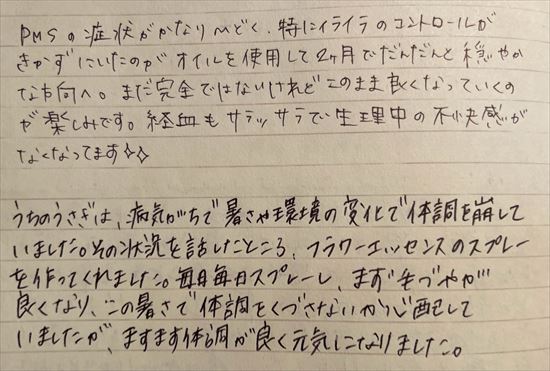 PMSの症状がかなりひどく、特にイライラのコントロールが
きかずにいたのがオイルを使用して2ヶ月でだんだんと穏やか
な方向へ。まだ完全ではないけれどこのまま良くなっていくの
が楽しみです。経血もサラッサラで生理中の不快感が
なくなってます✧✧
うちのうさぎは、病気がちで暑さや環境の変化で体調を崩して
いました。その状況を話したところ、フラワーエッセンスのスプレー
を作ってくれました。毎日毎日スプレーし、まず毛づやが
良くなり、この暑さで体調をくづさないか心配して
いましたが、ますます体調が良く元気になりました。